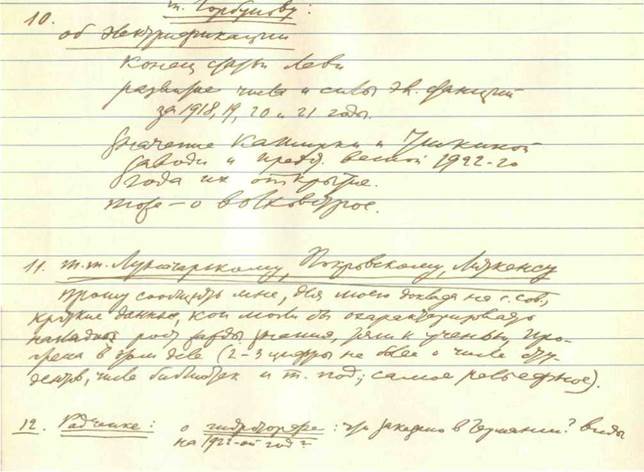 10. т. Горбунову:
об электрификации
Конец статьи Леви
развитие числа и силы эл. станций
за 1918, 19, 20 и 21 годы.
Значение Каширки и Уткиной
Заводи и предп. весной 1922-го
года их открытие.
тоже – о Волховстрое.
11. т.т. Луначарскому, Покровскому, Литкенсу
Прошу сообщить мне, для моего доклада на с. сов,
краткие данные, кои могли бы охарактеризовать
рост жажды знания, тяги к ученью, про-
гресса в этом деле (2-3 цифры не более о числе сту-
дентов, числе библиотек и т. под; самое рельефное).
12. Радченке: о гидроторфе: что заказано в Германии? виды
на 1922-ой год?